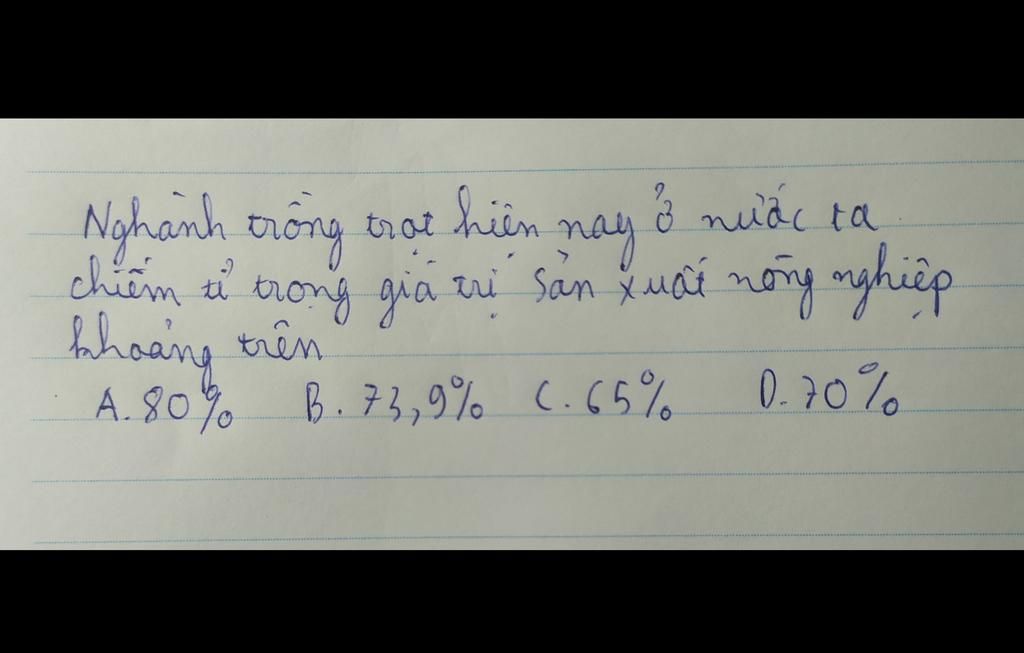 Nghành trồng trọt hiện nay ở nước ta
chiếm tỉ trọng giá trị sản xuất nông nghiệp
khoảng trên
A. 80% B. 73,9% C. 65% D. 70%